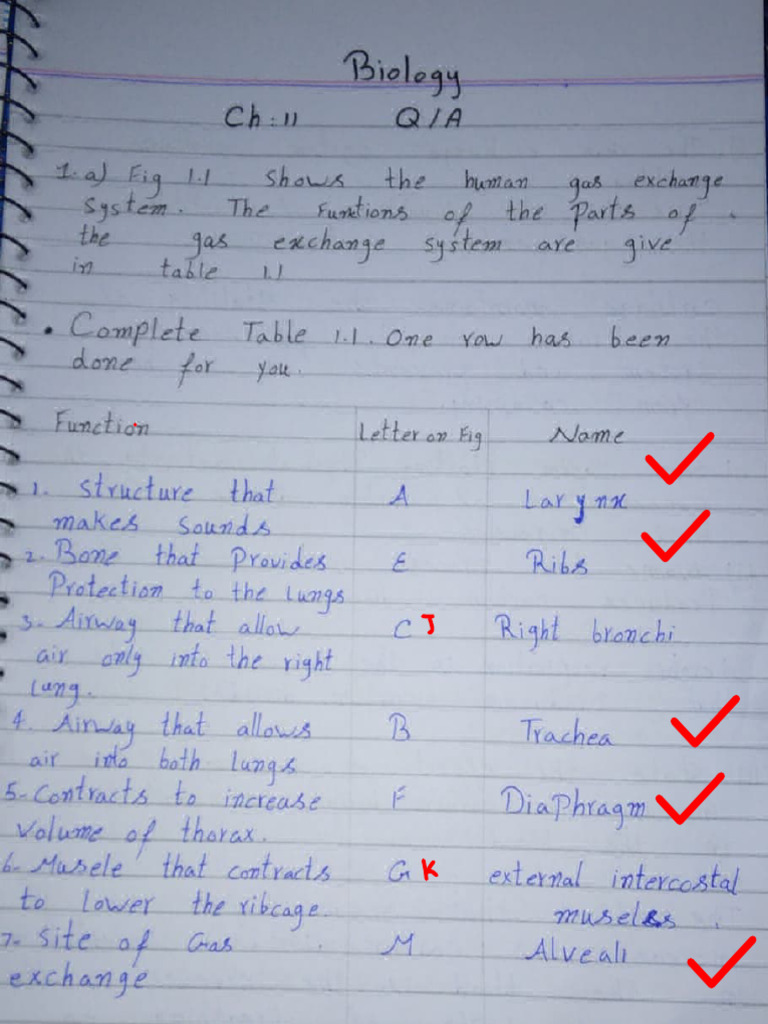 Biology
Ch : 11 Q/A
1. a) Fig 1.1 shows the human gas exchange
system. The Funtions of the Parts of
the gas exchange system are give
in table 1.1
• Complete Table 1.1. One row has been
done for you.
Function Letter on Fig Name
1. Structure that A Larynx
makes sounds
2. Bone that Provides E Ribs
Protection to the lungs
3. Airway that allow C J Right bronchi
air only into the right
lung.
4. Airway that allows B Trachea
air into both lungs
5. Contracts to increase F Diaphragm
Volume of thorax.
6. Musele that contracts G K external intercostal
to lower the ribcage. museless.
7. Site of Gas M Alveali
exchange